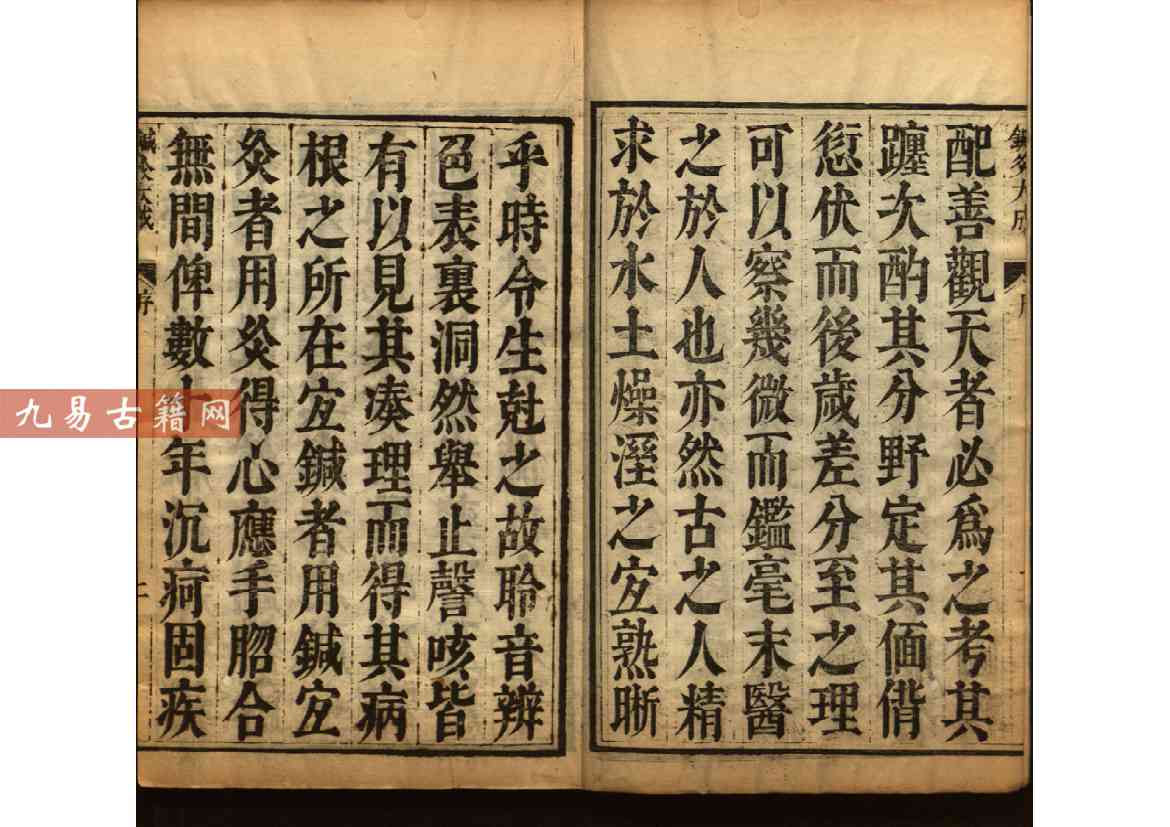 鍼灸大成
序
配善觀天者必爲之考其
躔次酌其分野定其偭偝
愆伏而後歲差分至之理
可以察幾微而鑑毫末醫
之於人也亦然古之人精
求於水土燥溼之宐熟晰
乎時令生尅之故聆音辨
色表裏洞然舉止謦咳皆
有以見其凑理而得其病
根之所在宐鍼者用鍼宐
灸者用灸得心應手脗合
無間俾數十年沉疴固疾
鍼灸大成
序
二
九易古籍网